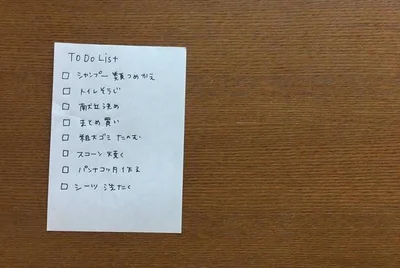 TO DO List
シャンプー類つめかえ
トイレそうじ
献立決め
まとめ買い
粗大ゴミ たのむ
スコーン焼く
パンナコッタ作る
シーツ 洗たく